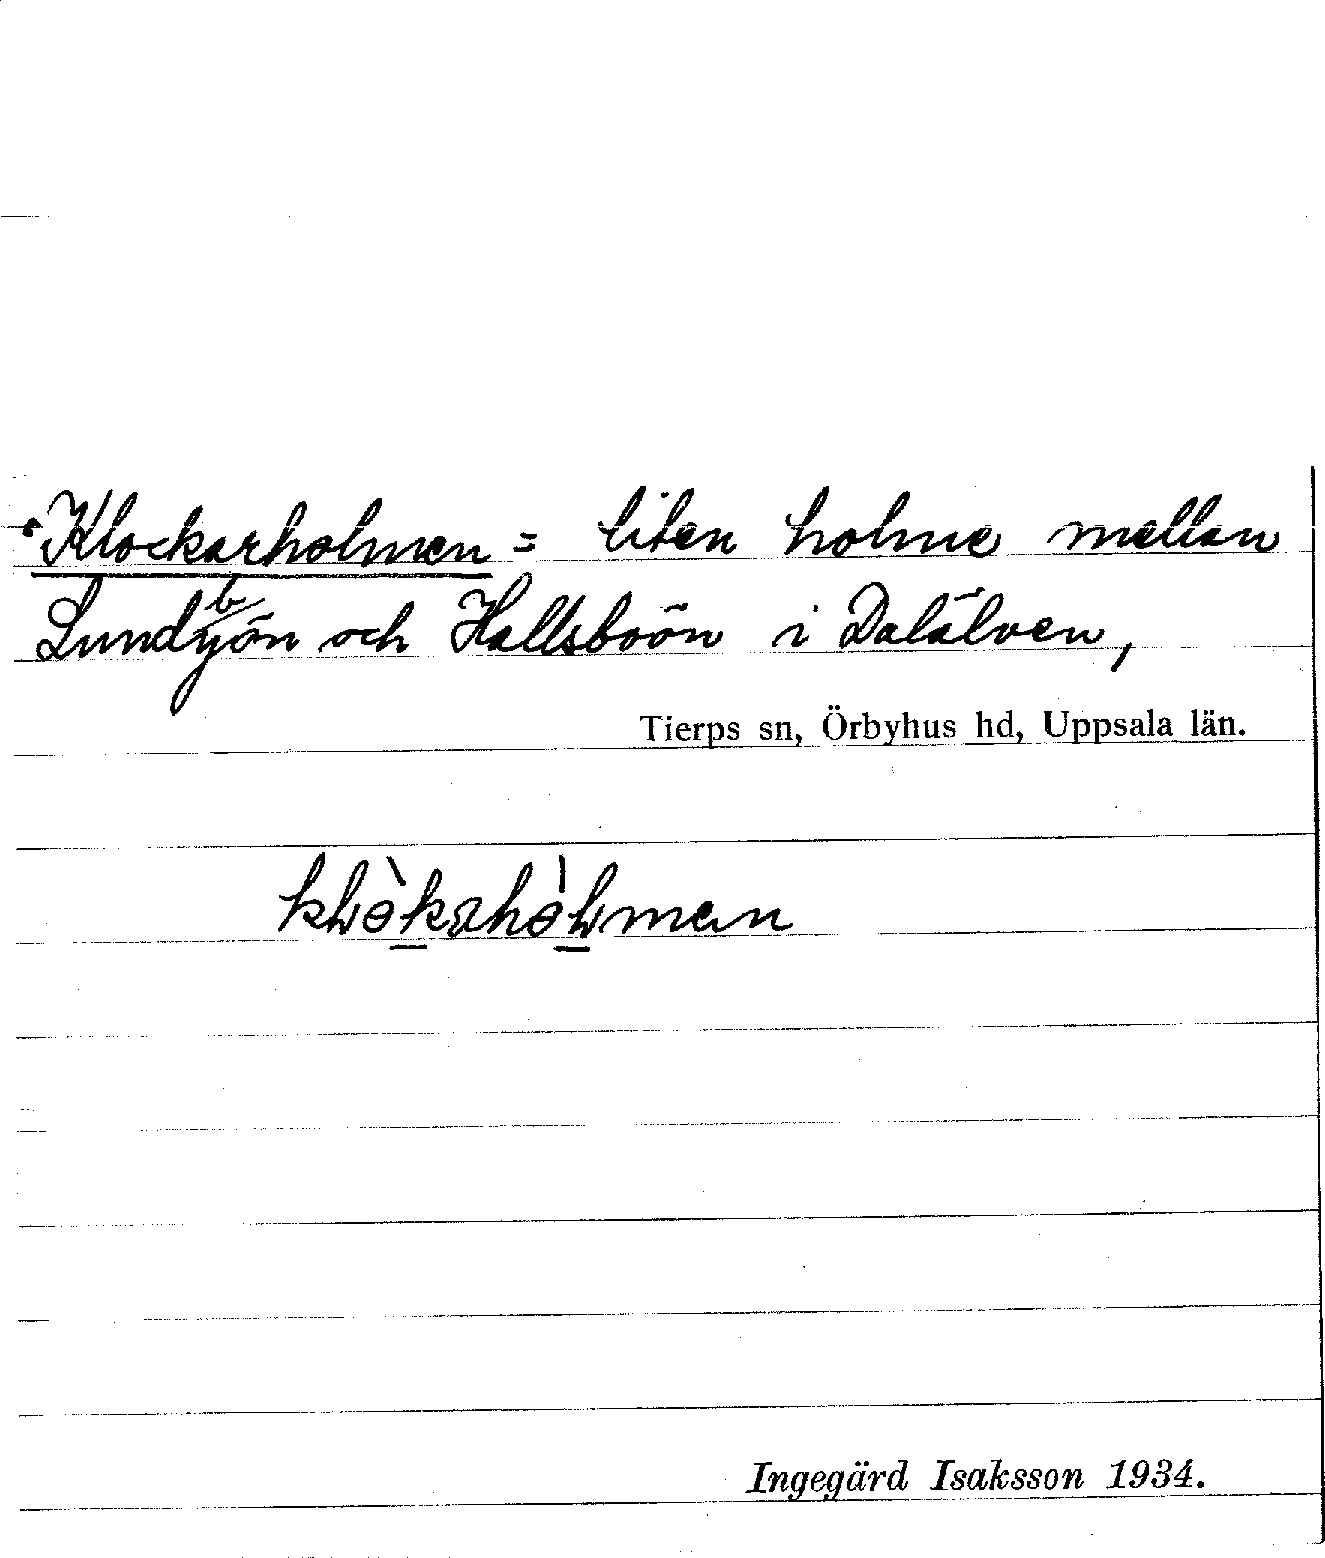 Klockarholmen = liten holme mellan
Lundbyön och Hallsboön i Dalälven,
Tierps sn, Örbyhus hd, Uppsala län.
Ingegärd Isaksson 1934.